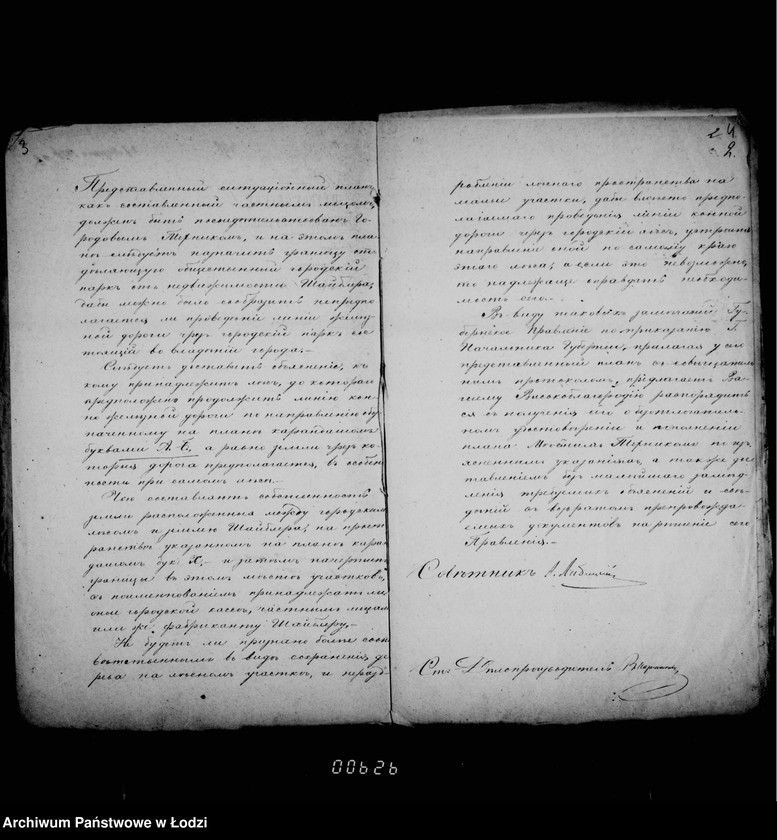 3
Представленный ситуаціонный планъ,
какъ составленный частнымъ лицомъ,
долженъ быть посвидѣтельствованъ Го-
родовымъ Мѣрникомъ, и на этомъ пла-
нѣ слѣдуетъ назначить границу от-
дѣляющую общественный городскій
паркъ отъ недвижимости Шайблера,
дабы можно было сообразить не предпо-
лагается ли проведеніе линіи желѣз-
ной дороги чрезъ городскій паркъ сос-
тоящій во владѣніи города.-
Слѣдуетъ доставить объясненіе, къ
кому принадлежитъ лѣсъ, до котораго
предположено продолжить линію кон-
но-желѣзной дороги по направленію оз-
наченному на планѣ карандашомъ
буквами А-Б, а равно земли чрезъ ко-
торыя дорога предполагается, въ особен-
ности при самомъ лѣсѣ.-
Чью составляютъ собственность
земли расположенныя между городскимъ
лѣсомъ и землею Шайблера; на прост-
ранствѣ указанномъ на планѣ каран-
дашомъ бук. Х,- и затѣмъ начертить
границы въ этомъ мѣстѣ участковъ,
съ поименованіемъ принадлежатъ ли
оные городской кассѣ, частнымъ лицамъ
или же фабриканту Шайблеру.-
Не будетъ ли признано болѣе соот-
вѣтственнымъ въ видѣ сохраненія де-
рева на лѣсномъ участкѣ, и нераз-
4
2.
дробленіи лѣснаго пространства на
малые участки, дабы вмѣсто предпо-
лагаемаго проведенія линіи конной
дороги чрезъ городскій лѣсъ, устроить
направленіе оной по самому краю
этаго лѣса; а если это невозможно,
то надлежаще оправдать необходи-
мость сего.-
Въ виду таковыхъ замѣчаній Гу-
бернское Правленіе по приказанію Г.
Начальника Губерніи, прилагая у сего
представленный планъ съ освидѣтель-
нымъ протоколомъ, предлагаетъ Ва-
шему Высокоблагородію распорядить-
ся о полученіи
номъ удостовѣреніи и исполненіи
плана Мѣстнымъ Мѣрникомъ по изъ-
ясненнымъ указаніямъ, а также до-
ставленіемъ безъ малѣйшаго замед-
ленія требуемыхъ объясненій и свѣ-
дѣній съ возвратомъ препровождае-
емыхъ документовъ на рѣшеніе сего
Правленія.-
Совѣтникъ
Ст. Дѣлопроизводитель
00626
Archiwum Państwowe w Łodzi